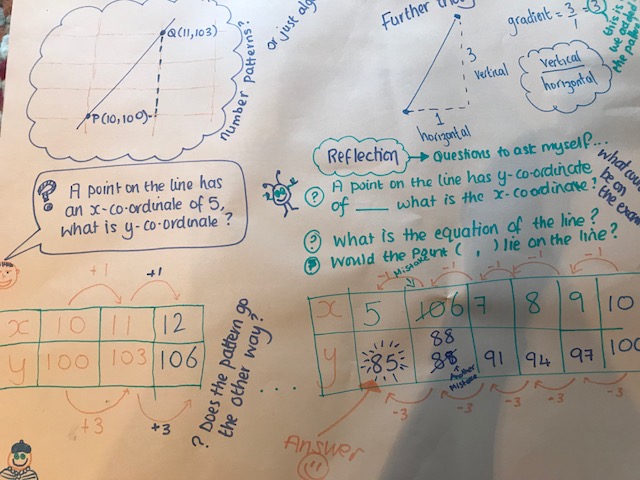 Q(11,103)
P(10,100)
number patterns?
or just alg
Further
gradient = 3/1 = 3
this is
we add
the pat
3
vertical
1
horizontal
vertical
horizontal
Reflection → Questions to ask myself...
? A point on the line has y-co-ordinate
of ___ what is the x-co-ordinate?
? What is the equation of the line?
? Would the point ( , ) lie on the line?
what cou
be on
the exam
? A point on the line has
an x-co-ordinate of 5,
what is y-co-ordinate?
+1 +1
x 10 11 12
y 100 103 106
+3 +3
? Does the pattern go
the other way?
....
Mistake
-1 -1 -1 -1 -1
x 5 10 6 7 8 9 10
88
y 85 88 91 94 97 100
Another
Mistake
-3 -3 -3 -3 -3
Answer